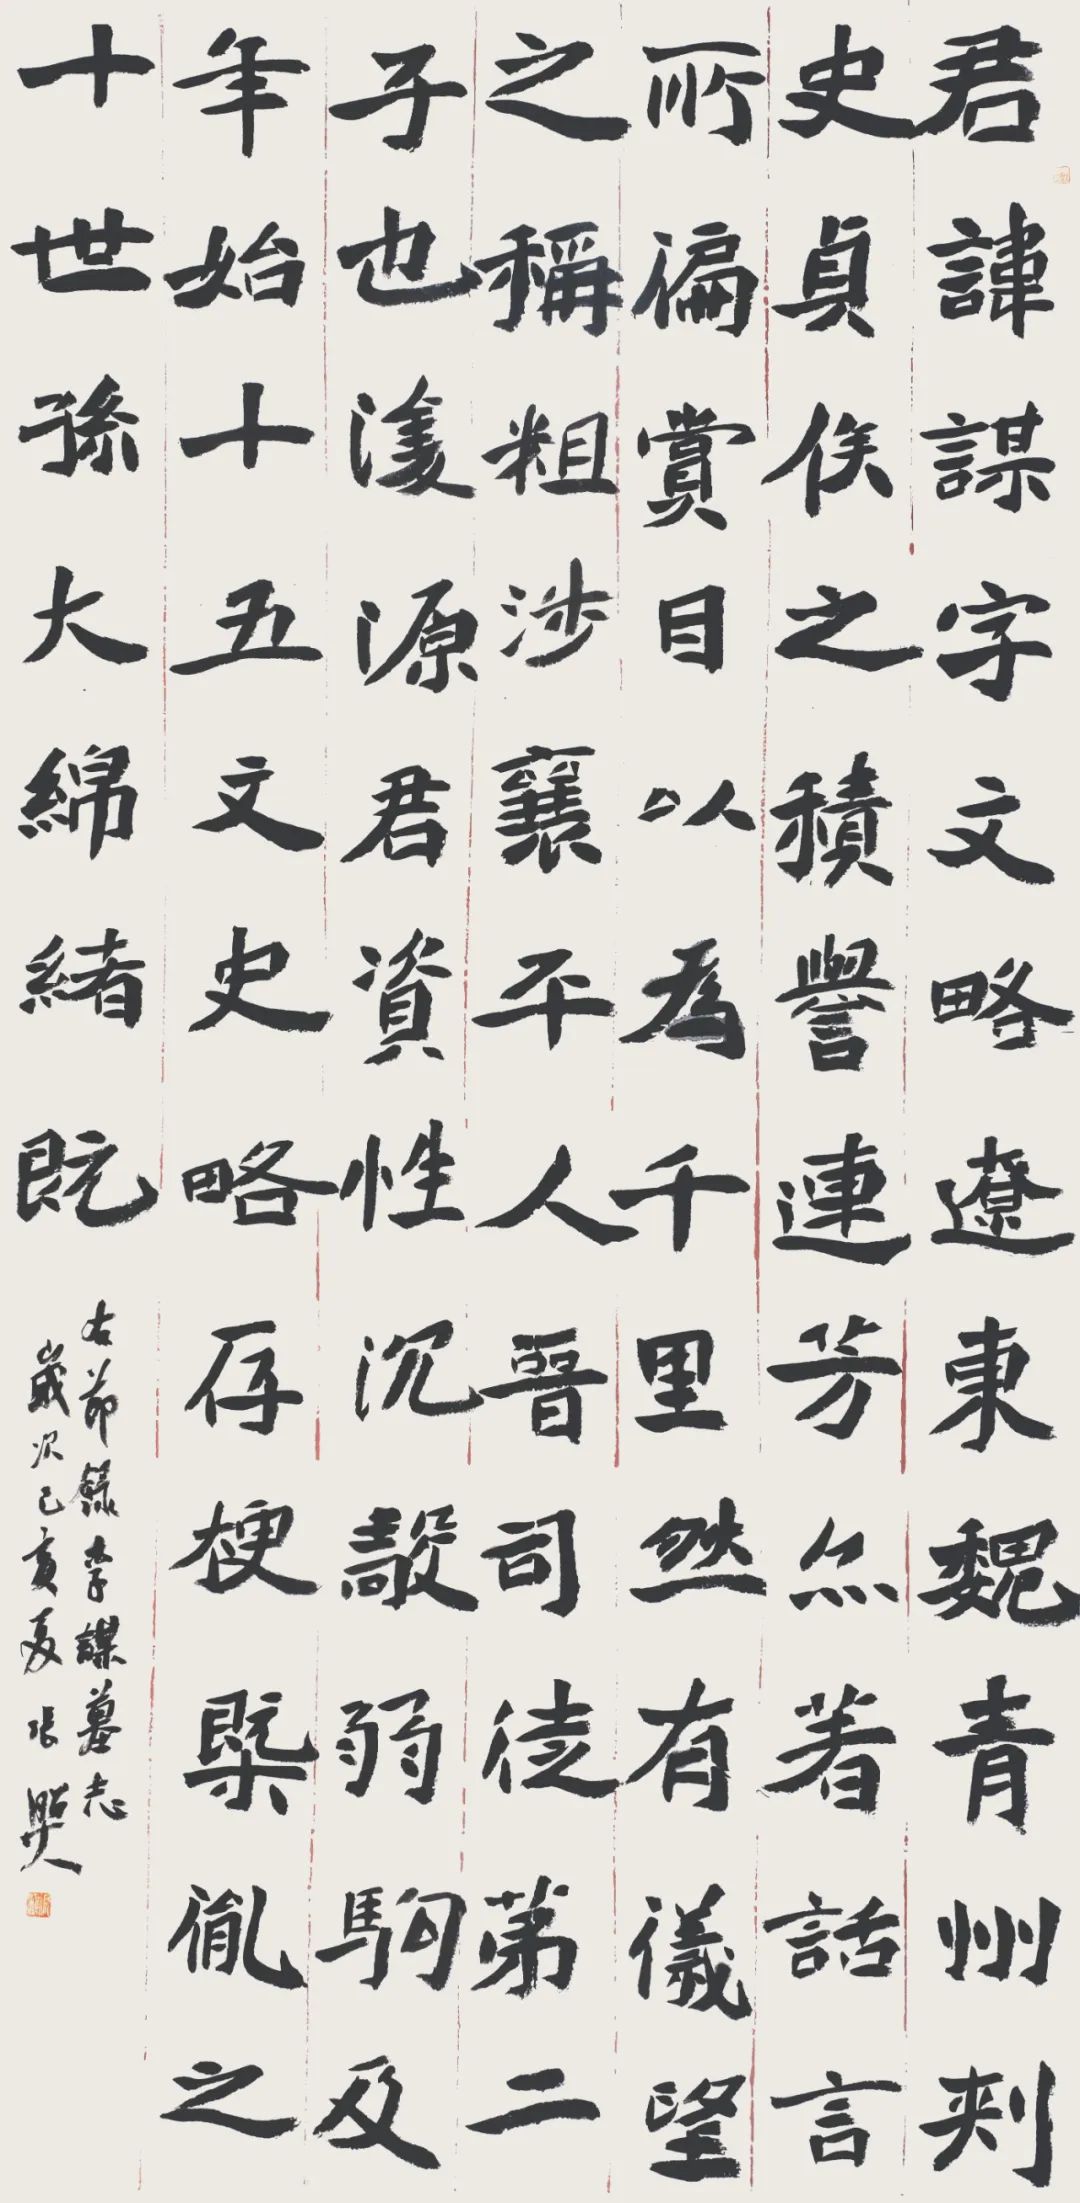 君諱謀字文略遼東魏青州刾
史貞侯之積譽連芳尒著話言
所偏賞目以為千里然有儀望
之稱粗涉襄平人晉司徒第二
子也濬源君資性沉毅弱駒及
年始十五文史略存梗槩胤之
十世孫大綿緒既
右節錄李謀墓志
歲次己亥夏張